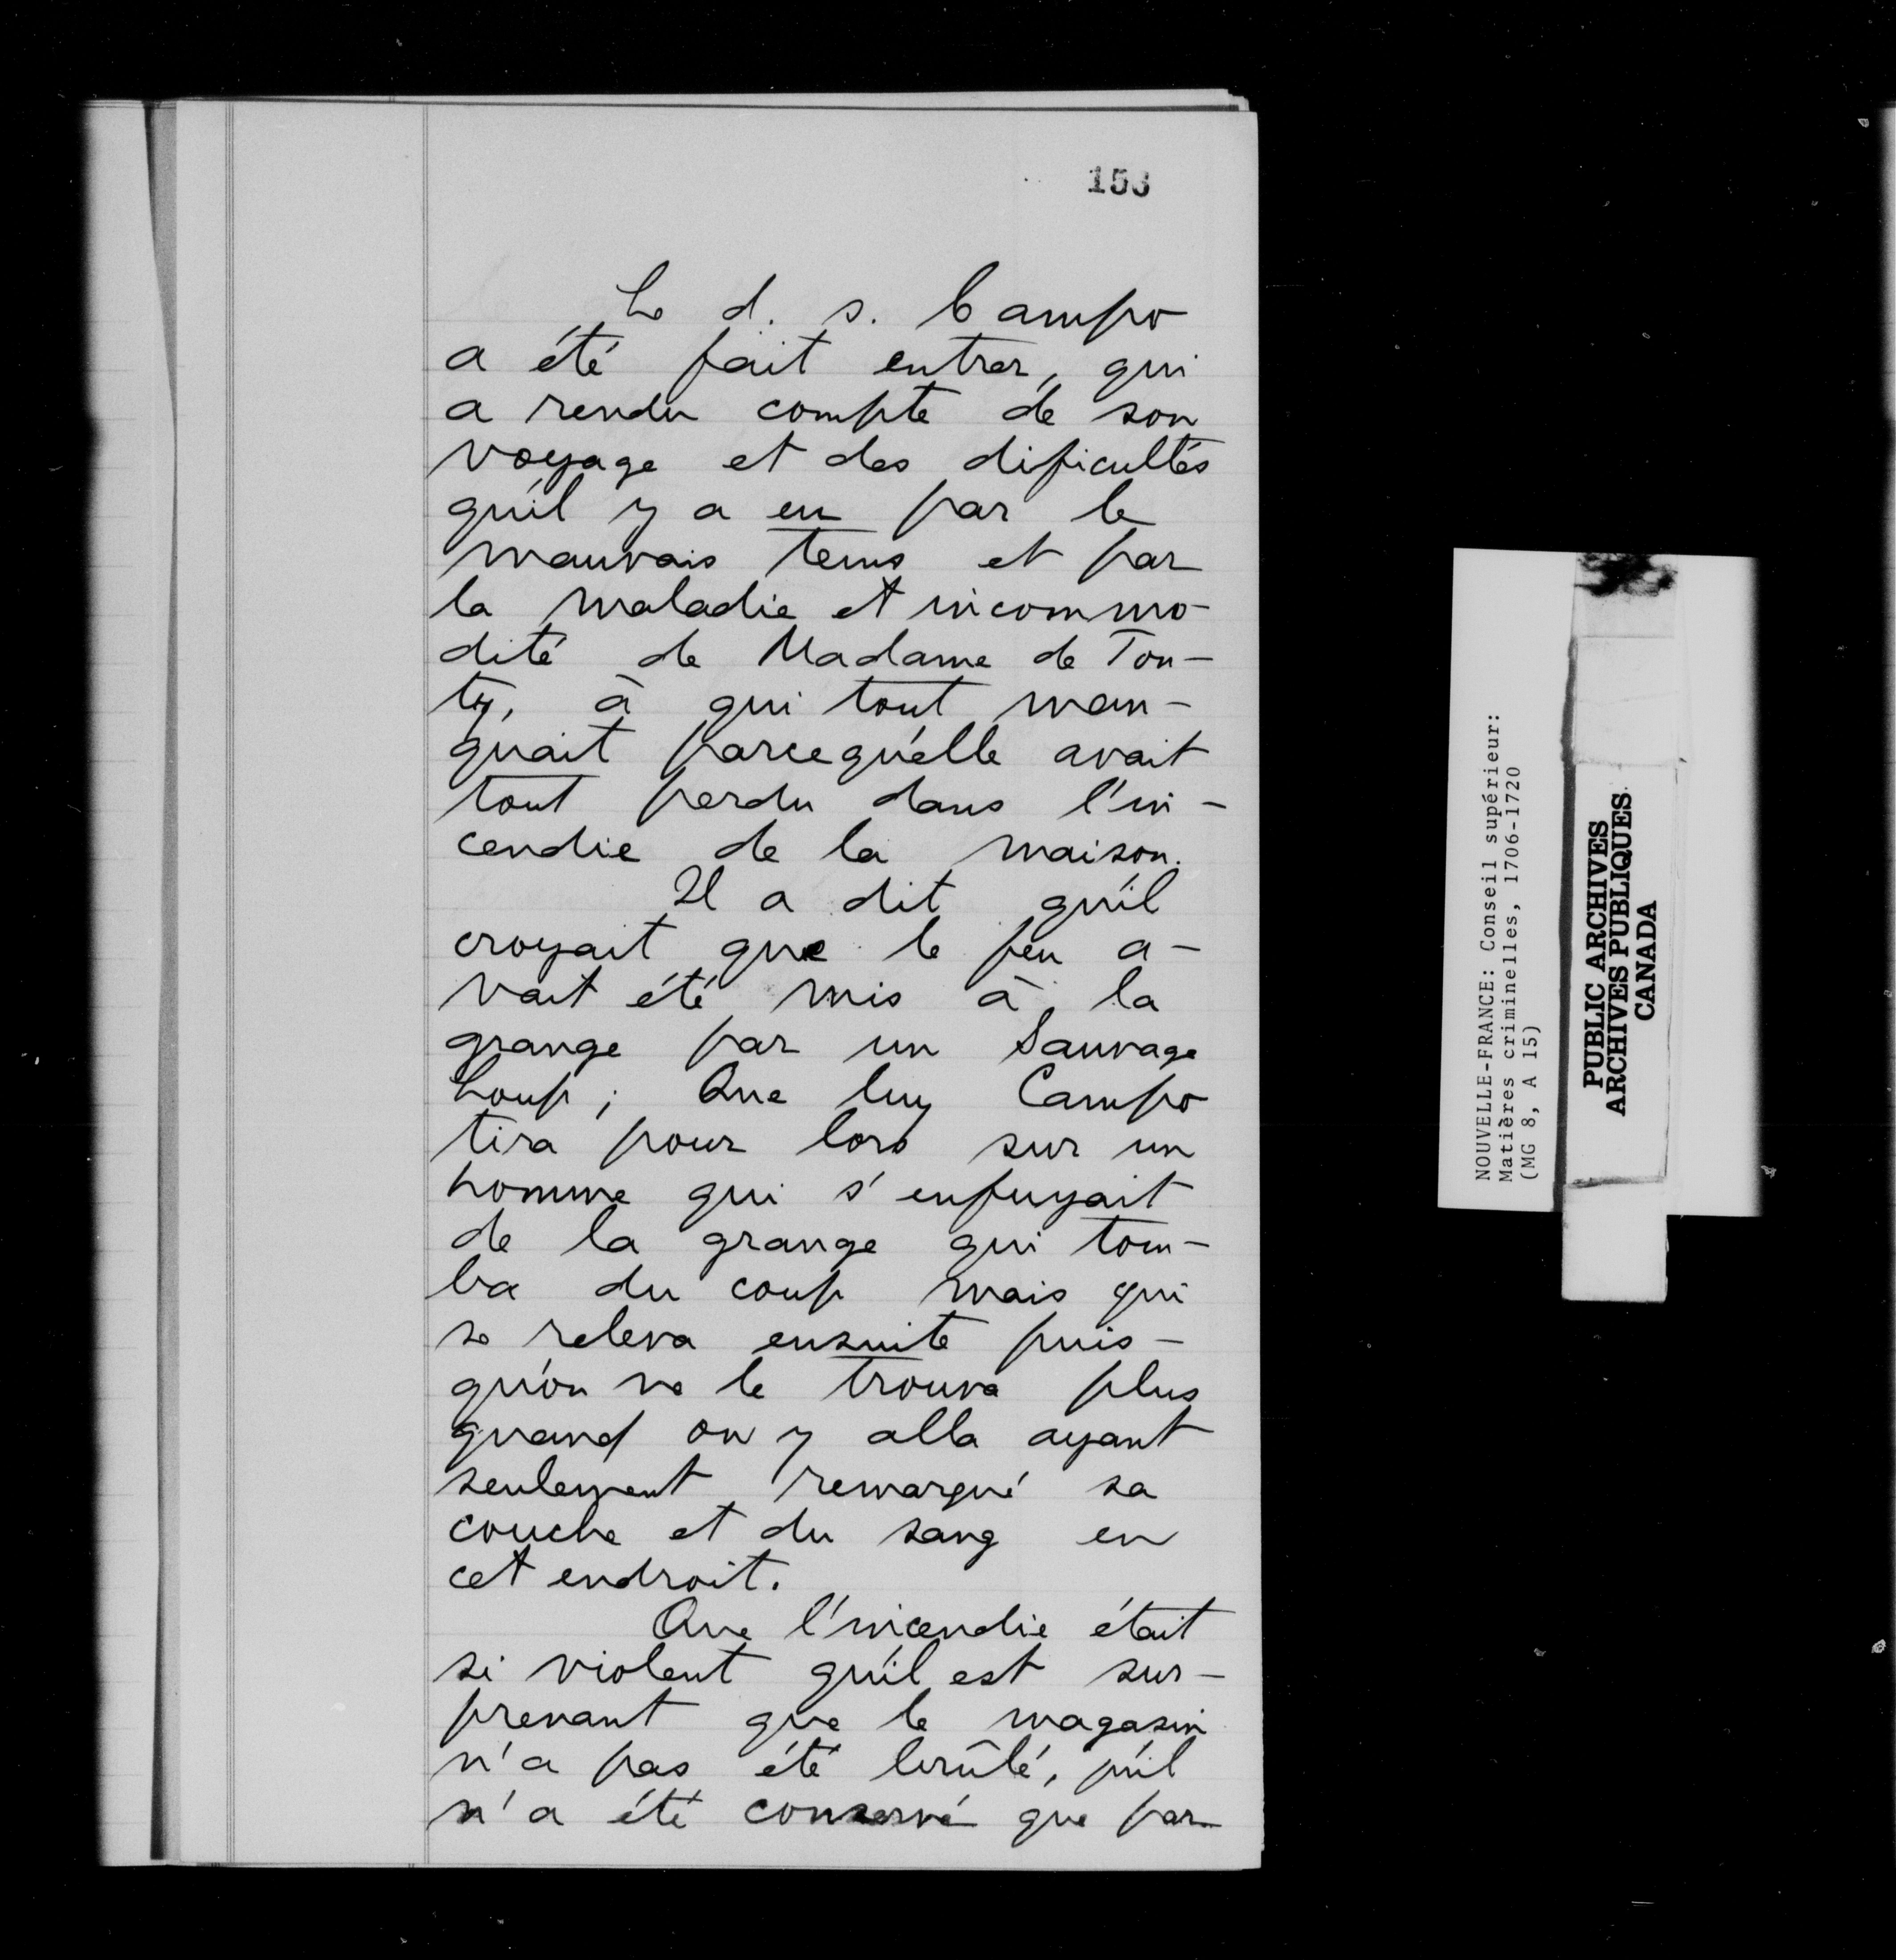 153
Le d. s. Campo
a été fait entrer, qui
a rendu compte de son
voyage et des dificultés
qu'il y a eu par le
mauvais tems et par
la maladie et incommo-
dité de Madame de Ton-
ty, à qui tout man-
quait parcequ'elle avait
tout perdu dans l'in-
cendie de la maison.
Il a dit qu'il
croyait que le feu a-
vait été mis à la
grange par un Sauvage
Loup; Que luy Campo
tira pour lors sur un
homme qui s'enfuyait
de la grange qui tom-
ba du coup mais qui
se releva ensuite puis-
qu'on ne le trouva plus
quand on y alla ayant
seulement remarqué sa
couche et du sang en
cet endroit.
Que l'incendie était
si violent qu'il est sur-
prenant que le magasin
n'a pas été brûlé, qu'il
n'a été conservé que par
NOUVELLE-FRANCE: Conseil supérieur:
Matières criminelles, 1706-1720
(MG 8, A 15)
PUBLIC ARCHIVES
ARCHIVES PUBLIQUES
CANADA